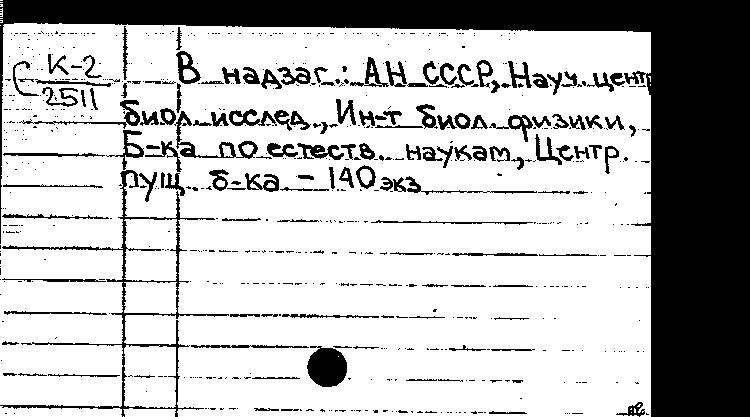 К-2
2511
В надзаг.: АН СССР, Науч. центр
биол. исслед., Ин-т биол. физики,
Б-ка по естеств. наукам, Центр.
пущ. б-ка. - 140 экз.